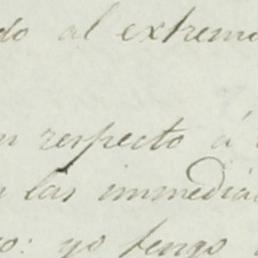 do al extremo
n respecto á
las immedia
o: yo tengo